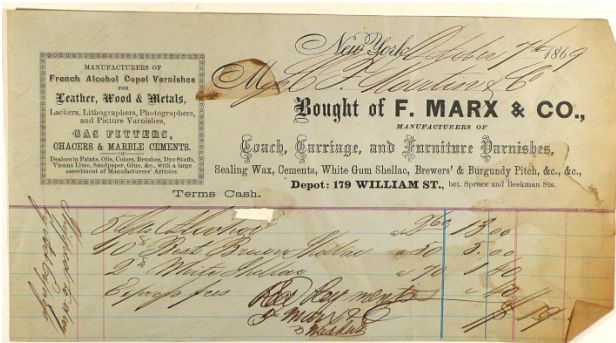 MANUFACTURERS OF
French Alcohol Copal Varnishes
FOR
Leather, Wood & Metals,
Lackers, Lithographers, Photographers,
and Picture Varnishes,
GAS FITTERS,
CHACERS & MARBLE CEMENTS.
Dealers in Paints, Oils, Colors, Brushes, Dye Stuffs,
Vienna Lime, Sandpaper, Glue, &c., with a large
assortment of Manufacturers' Articles.
New York October 7th 1869
M & Co
Bought of F. MARX & CO.,
MANUFACTURERS OF
Coach, Carriage, and Furniture Varnishes,
Sealing Wax, Cements, White Gum Shellac, Brewers' & Burgundy Pitch, &c., &c.,
Depot: 179 WILLIAM ST., bet. Spruce and Beekman Sts.
Terms Cash.
5 Alcohol 2 60 13.00
10 Best Brown Shellac 50 5.00
2 White Shellac 70 1.40
Rec payment
F Marx & C